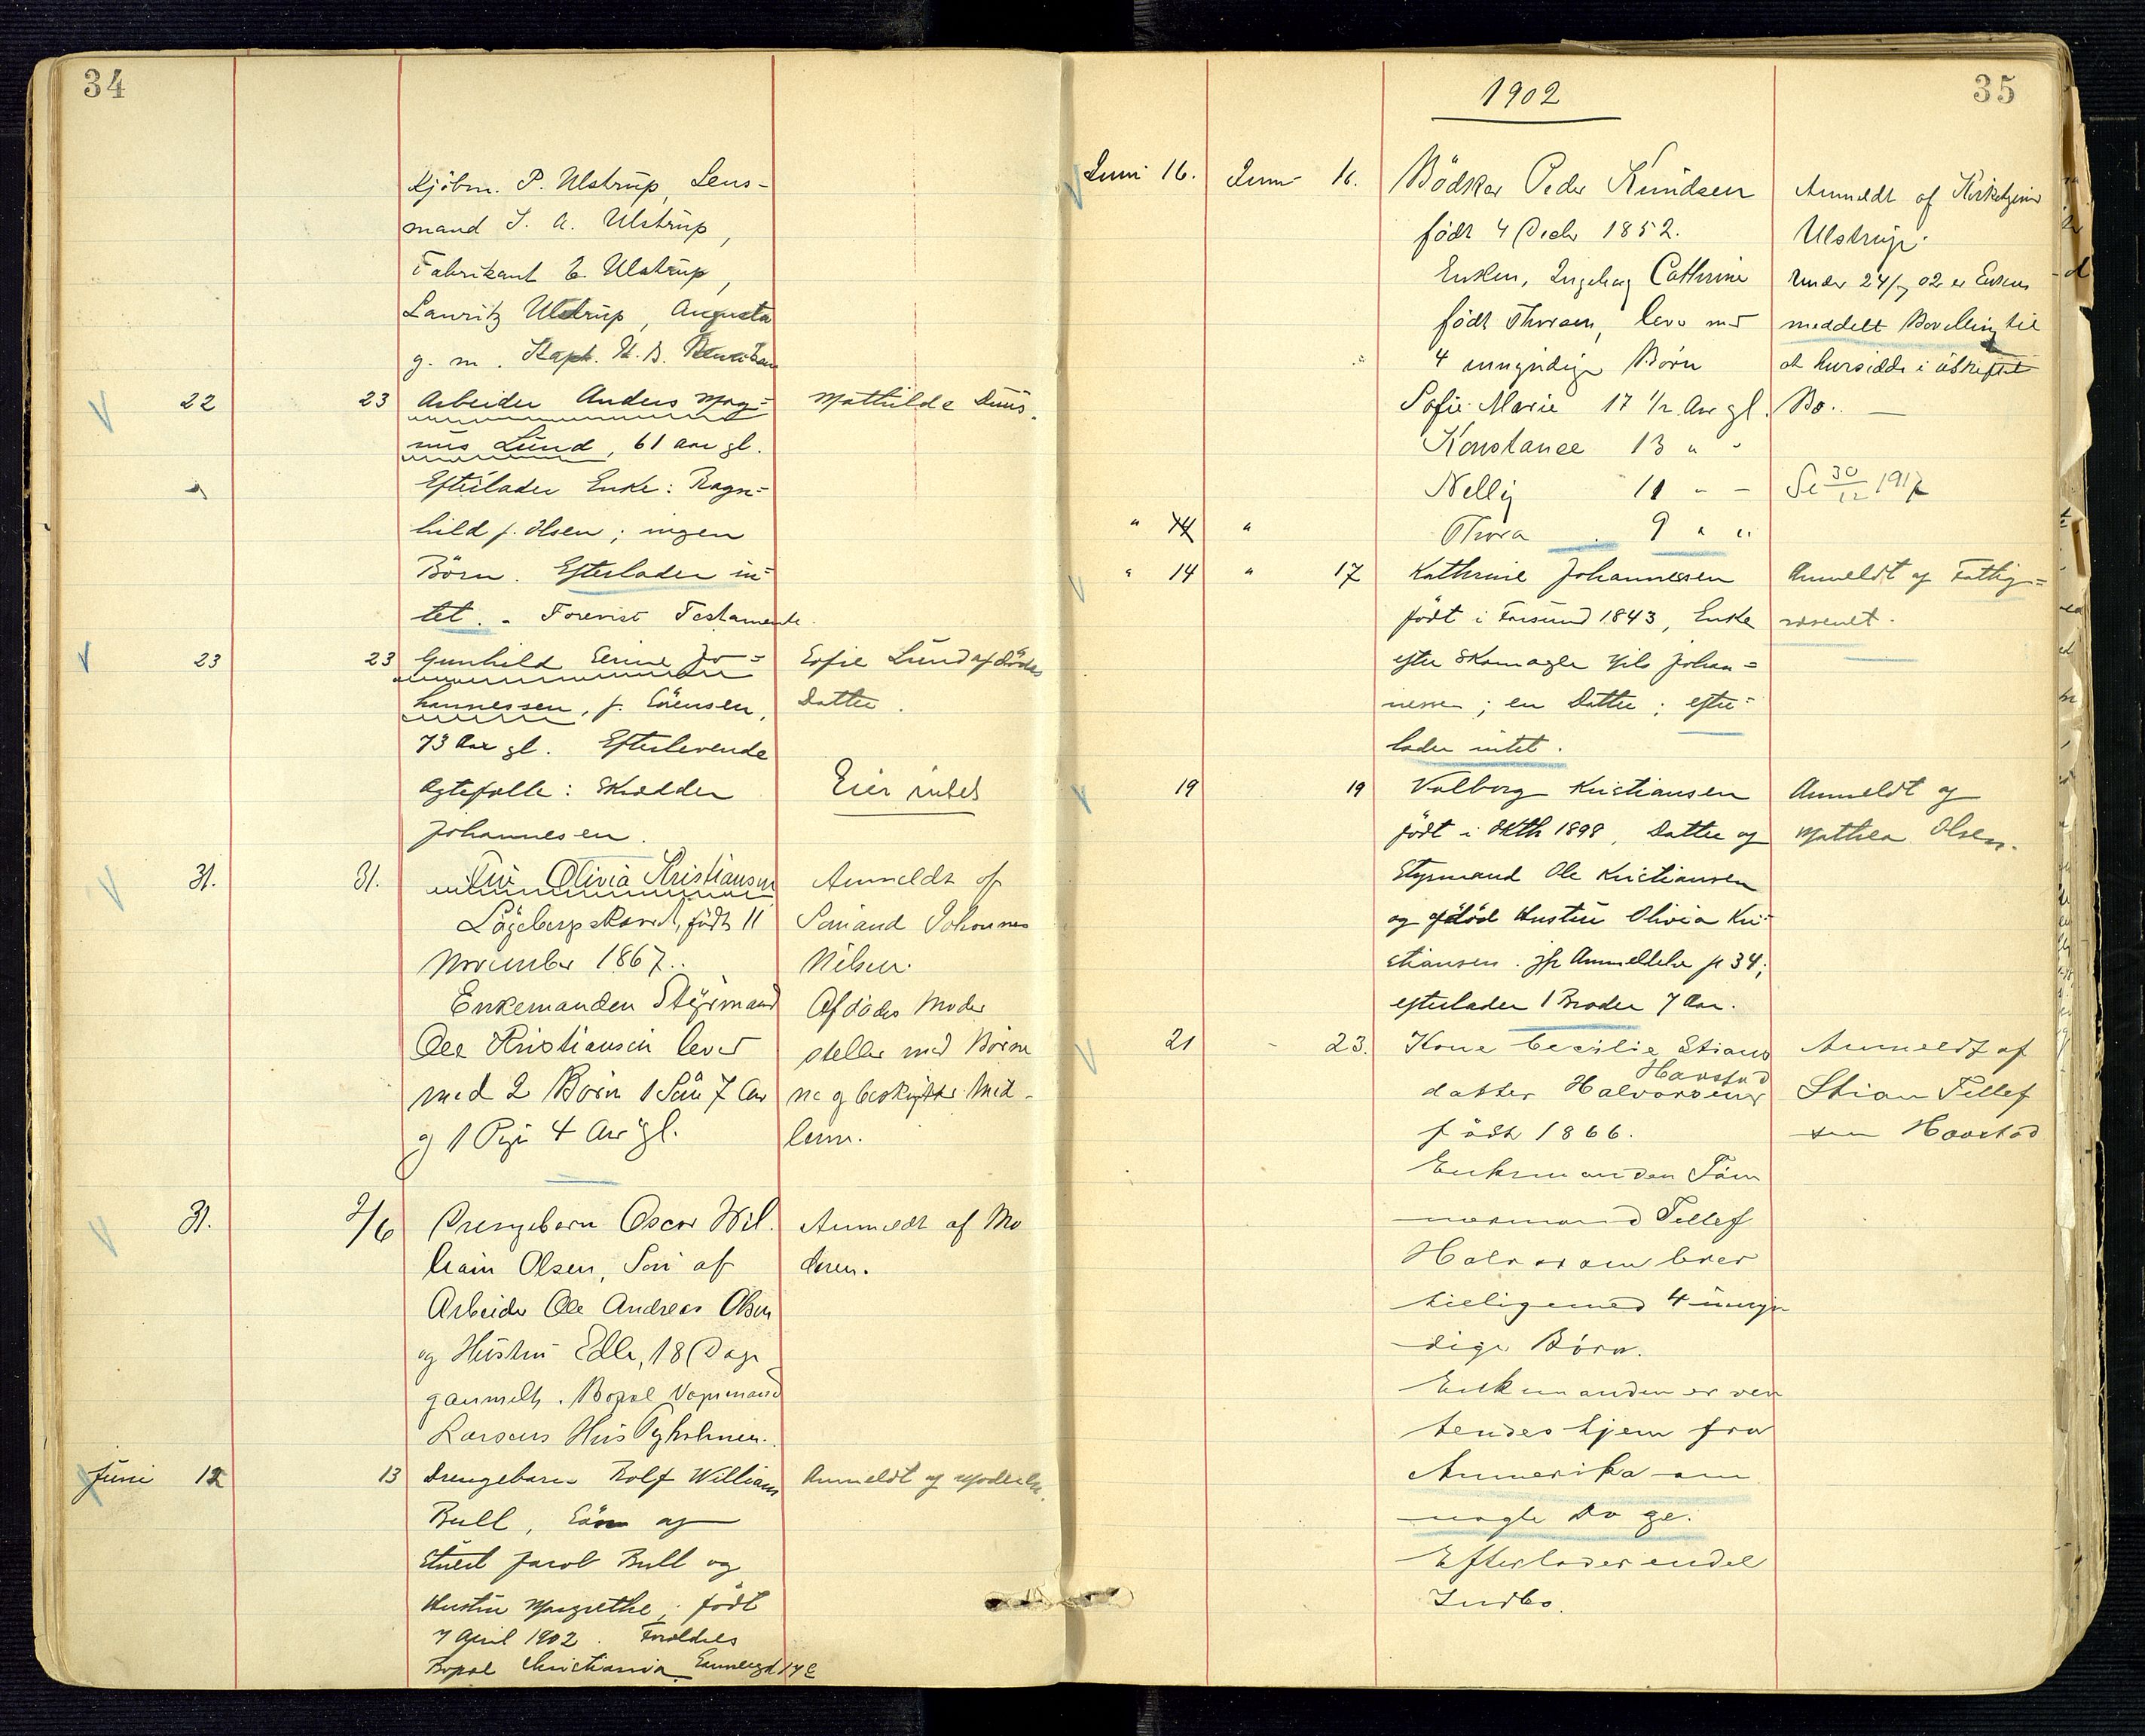 34
Kjöbm. P. Ulstrup, Lens-
mand J. A. Ulstrup,
Fabrikant E. Ulstrup,
Lauritz Ulstrup, Augusta
g. m. Kapt.
22 23 Arbeider Anders Mag=
nus Lund, 61 aar gl.
Efterlader Enke: Ragn=
hild f. Olsen; ingen
Börn. Efterlader in=
tet. - Forevist Testamente.
Mathilde Duus.
23 23 Gunhild Serine Jo=
hannessen, f. Sörensen,
73 Aar gl. Efterlevende
Ægtefælle: Skrædder
Johannesen.
Sofie Lund afdödes
Datter.
Eier intet
31. 31. Olivia Kristiansen
født 11
November 1867.
Enkemanden Styrmand
Ole Kristiansen lever
med 2 Börn 1 Sön 7 Aar
og 1 Pige 4 Aar gl.
Anmeldt af
Sömand Johannes
Nilsen.
Afdödes Moder
steller med Börne
ne og beskytter Mid-
lerne.
31. 2/6 Drengebarn Oscar Wil
liam Olsen, Sön af
Arbeider Ole Andreas Olsen
og Hustru Edle, 18 Dage
gammelt. Bopæl
Larsens Hus Tyholmen.
Anmeldt af Mo
deren.
Juni 12 13 Drengebarn Rolf William
Bull, Sön af
Jacob Bull og
Hustru Margrethe; födt
7 April 1902. Forældres
Bopæl Christiania
Anmeldt af Moderen.
1902
35
Juni 16. Juni 16. Bödker Peder Knudsen
födt 4 Decbr 1852.
Enken, Ingeborg Cathrine
födt Thorsen, lever med
4 umyndige Börn
Sofie Marie 17 1/2 Aar gl.
Konstance 13 " "
Nelly 11 " "
" 14 " Thora 9 " "
Anmeldt af
Ulstrup.
Under 24/7 02 er Enken
meddelt Bevilling til
at hensidde i uskiftet
Bo.
Se 30/12 1917
" 14 " 17 Kathrine Johannessen
födt i Farsund 1843, Enke
efter Skomager Nils Johan=
nessen; en Datter; efter=
lader intet.
Anmeldt af Fattig=
væsenet.
19 19 Valborg Kristiansen
födt i Okth 1898, Datter af
Styrmand Ole Kristiansen
og afdöd Hustru Olivia Kri=
stiansen. jfr Anmeldelse p 34;
efterlader 1 Broder 7 Aar.
Anmeldt af
Mathea Olsen.
21 - 23. Kone Cecilie Stians
Havstad
datter Halvorsens
födt 1866.
Enkemanden Töm
mermand Tellef
Halvorsen lever
tilligemed 4 umyn
dige Börn.
Enkemanden er ven
tendes hjem fra
Ammerika om
nogle Dage.
Efterlader endel
Indbo.
Anmeldt af
Stian Tellef
sen Havstad